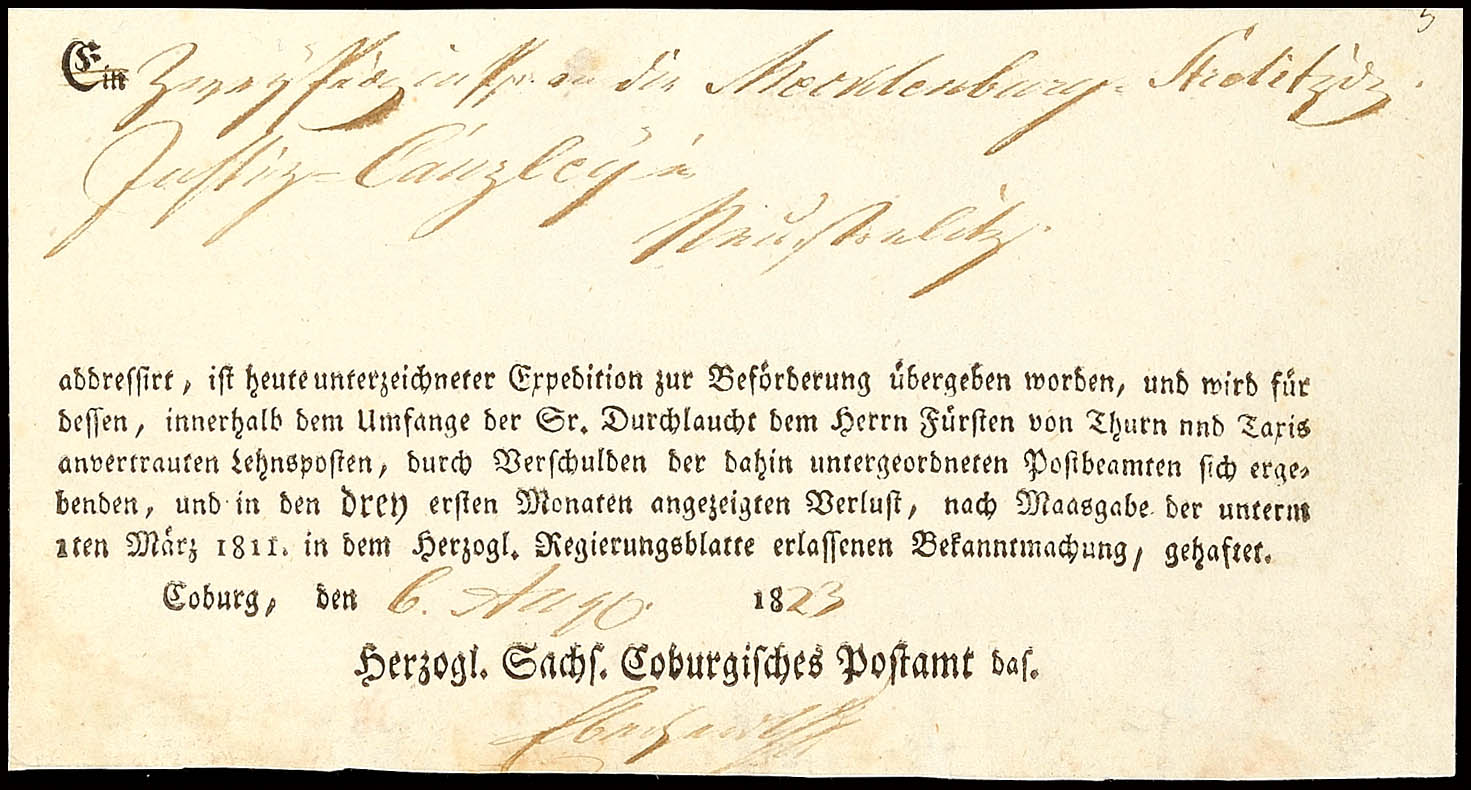 5
Ein Zwey an die Mecklenburg-Strelitz.
Justiz-Canzley in
Neustrelitz.
addressirt, ist heute unterzeichneter Expedition zur Beförderung übergeben worden, und wird für
dessen, innerhalb dem Umfange der Sr. Durchlaucht dem Herrn Fürsten von Thurn nnd Taxis
anvertrauten Lehnsposten, durch Verschulden der dahin untergeordneten Postbeamten sich erge-
benden, und in den drey ersten Monaten angezeigten Verlust, nach Maasgabe der unterm
1ten März 1811. in dem Herzogl. Regierungsblatte erlassenen Bekanntmachung, gehaftet.
Coburg, den 6. Aug. 1823
Herzogl. Sachs. Coburgisches Postamt das.